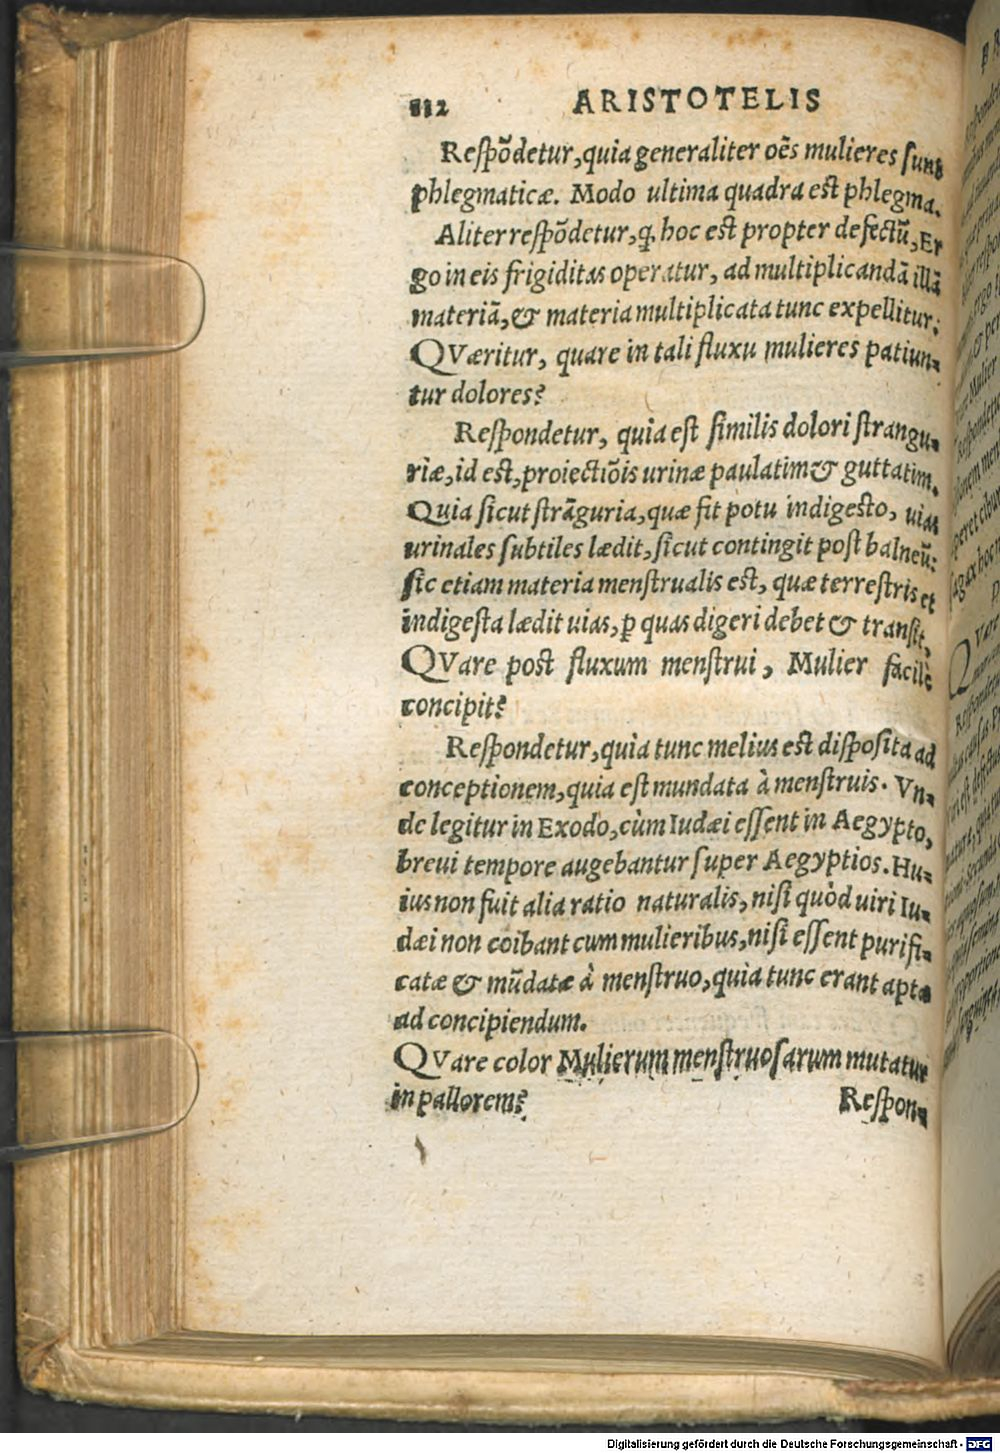 112 ARISTOTELIS
Respõdetur, quia generaliter oẽs mulieres sunt
phlegmaticæ. Modo ultima quadra est phlegma.
Aliter respõdetur, q. hoc est propter defectũ, Er
go in eis frigiditas operatur, ad multiplicandã illã
materiã, & materia multiplicata tunc expellitur:
QVæritur, quare in tali fluxu mulieres patiun-
tur dolores?
Respondetur, quia est similis dolori strangu-
riæ, id est, proiectiõis urinæ paulatim & guttatim.
Quia sicut strãguria, quæ fit potu indigesto, uias
urinales subtiles lædit, sicut contingit post balneũ:
sic etiam materia menstrualis est, quæ terrestris et
indigesta lædit uias, ꝑ quas digeri debet & transit.
QVare post fluxum menstrui, Mulier facilè
concipit?
Respondetur, quia tunc melius est disposita ad
conceptionem, quia est mundata à menstruis. Vn-
de legitur in Exodo, cùm Iudæi essent in Aegypto,
breui tempore augebantur super Aegyptios. Hu-
ius non fuit alia ratio naturalis, nisi quòd uiri Iu-
dæi non coibant cum mulieribus, nisi essent purifi-
catæ & mũdatæ à menstruo, quia tunc erant aptæ
ad concipiendum.
QVare color Mulierum menstruosarum mutatur
in pallorem? Respon-
Digitalisierung gefördert durch die Deutsche Forschungsgemeinschaft - DFG